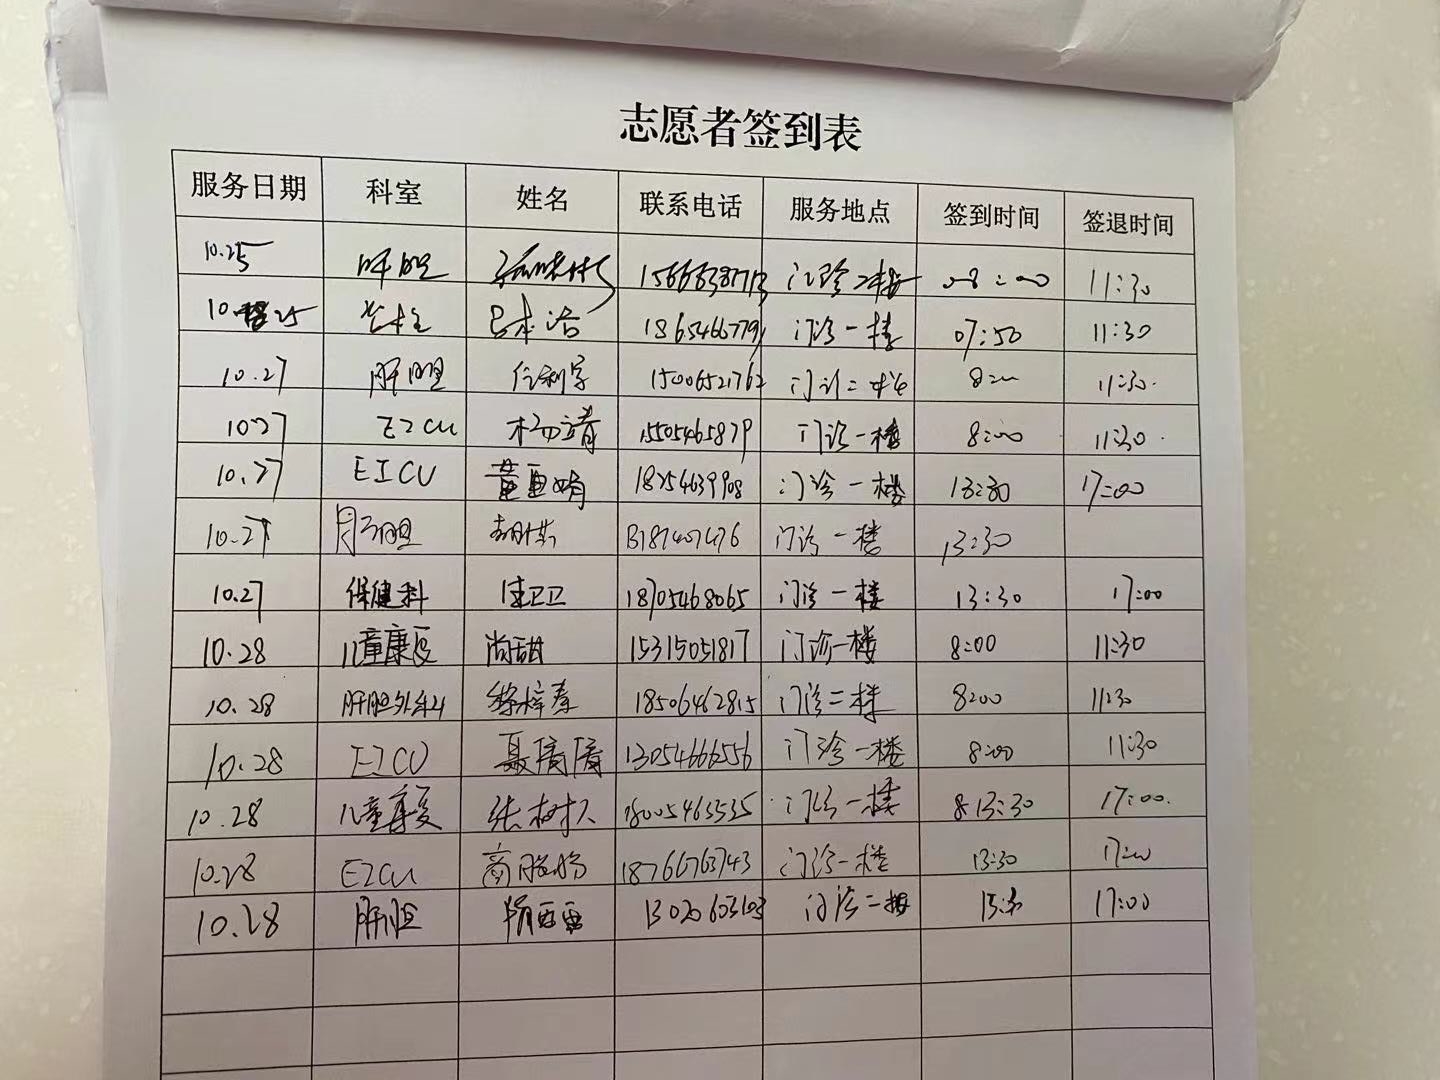 志愿者签到表
服务日期 科室 姓名 联系电话 服务地点 签到时间 签退时间
10.25 肝胆 门诊二楼 08:00 11:30
10.25 脊柱 吕本浩 门诊一楼 07:50 11:30
10.27 肝胆 任利学 15006521762 门诊二楼 8:00 11:30
10.27 EICU 杨靖 15505465879 门诊一楼 8:00 11:30
10.27 EICU 董亚娟 18254639908 门诊一楼 13:30 17:00
10.27 肝胆 胡琪 门诊一楼 13:30
10.27 保健科 卫卫 18705468065 门诊一楼 13:30 17:00
10.28 儿童康复 尚甜 15315051817 门诊一楼 8:00 11:30
10.28 肝胆外科 梓秦 18506462815 门诊二楼 8:00 11:30
10.28 EICU 聂倩倩 13054666556 门诊一楼 8:00 11:30
10.28 儿童康复 张树人 18005463535 门诊一楼 13:30 17:00
10.28 EICU 18766763743 门诊一楼 13:30 17:00
10.28 肝胆 隋西西 13020603103 门诊二楼 13:30 17:00